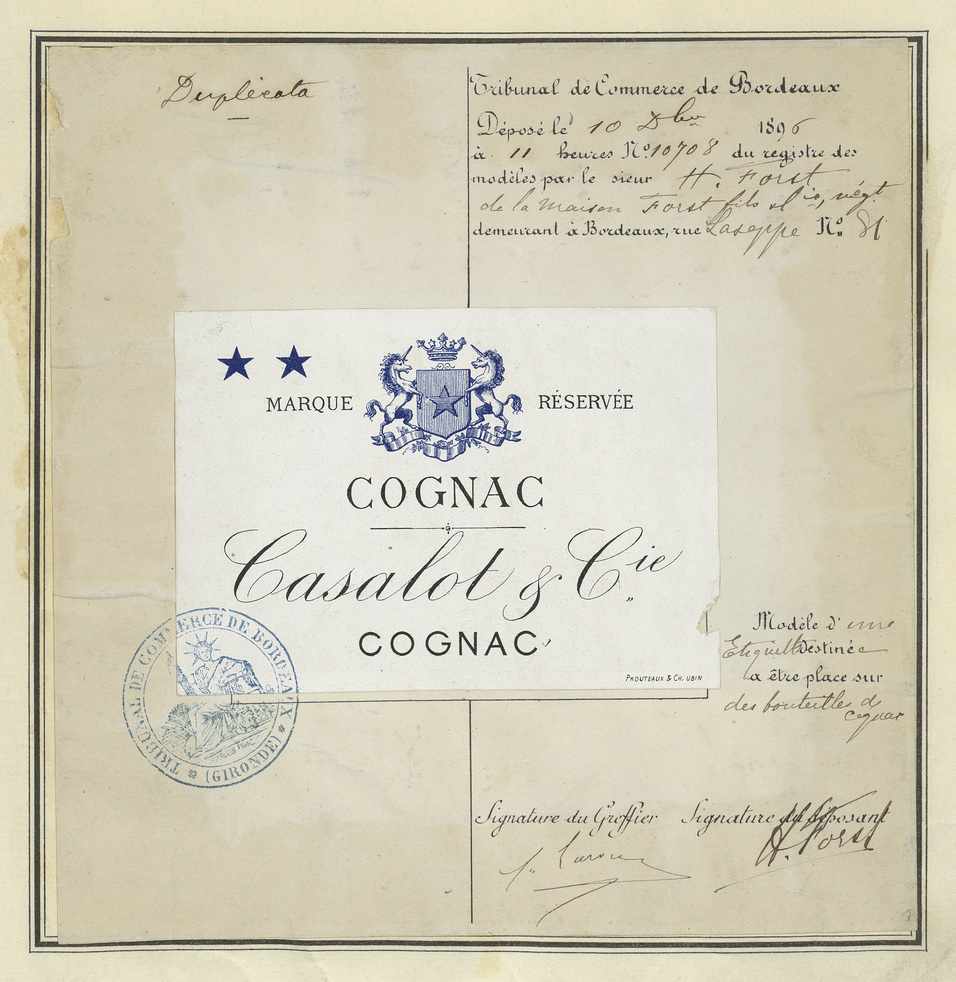 Duplicata
Tribunal de Commerce de Bordeaux
Déposé le 10 Xbre 1896
à 11 heures No. 10708 du registre des
modèles par le sieur H. Forst
de la maison Forst fils & Cie, négt
demeurant à Bordeaux, rue Laseppe No. 81
MARQUE RÉSERVÉE
COGNAC
Casalot & Cie
COGNAC
PROUTEAUX & CH. UBIN
TRIBUNAL DE COMMERCE DE BORDEAUX
(GIRONDE)
Modèle d'une
Etiquette destinée
a être place sur
des bouteilles de
cognac
Signature du Greffier Signature du déposant
H. Forst